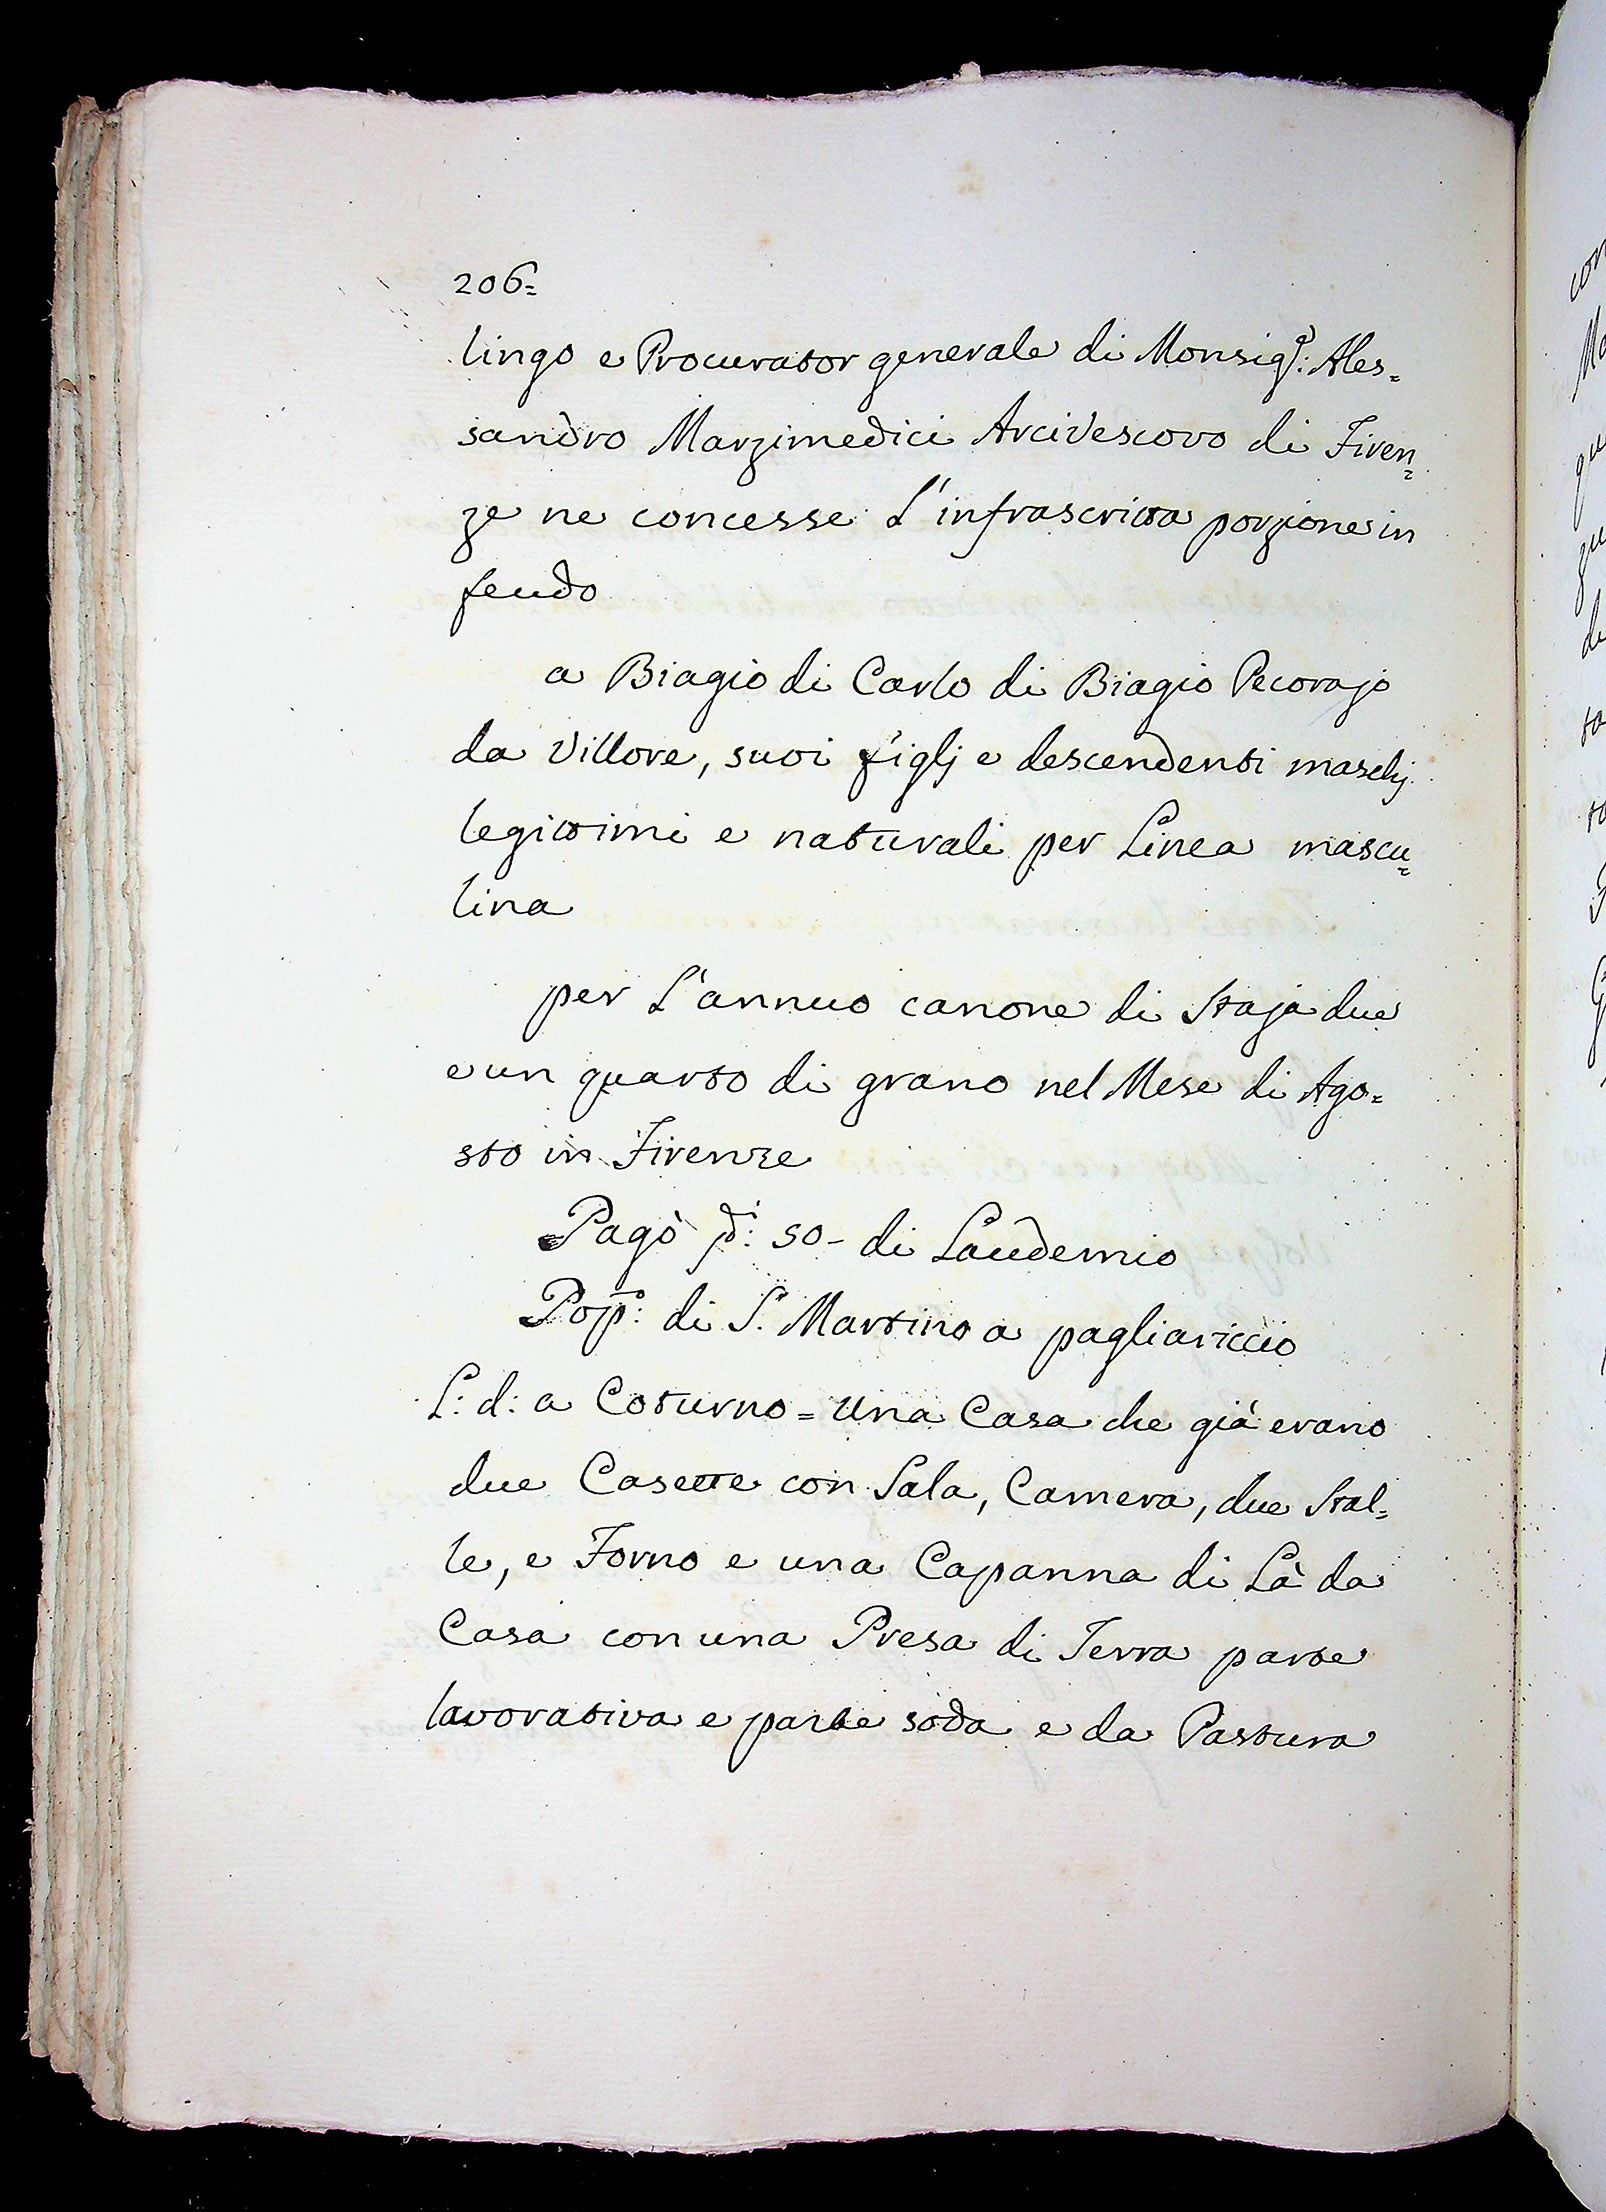 206=
lingo e Procurator generale di Monsig.r: Ales=
sandro Marzimedici Arcivescovo di Firen=
ze ne concesse L'infrascritta porzione in
feudo
a Biagio di Carlo di Biagio Pecorajo
da Villore, suoi figlj e descendenti maschj
legittimi e naturali per Linea mascu=
lina
per L'annuo canone di Staja due
e un quarto di grano nel Mese di Ago=
sto in Firenze
Pagò 50- di Laudemio
Pop.o: di S. Martino a pagliariccio
L: d: a Coturno = Una Casa che già erano
due Casette con Sala, Camera, due Stal=
le, e Forno e una Capanna di Là da
Casa con una Presa di Terra parte
lavorativa e parte soda e da Pastura